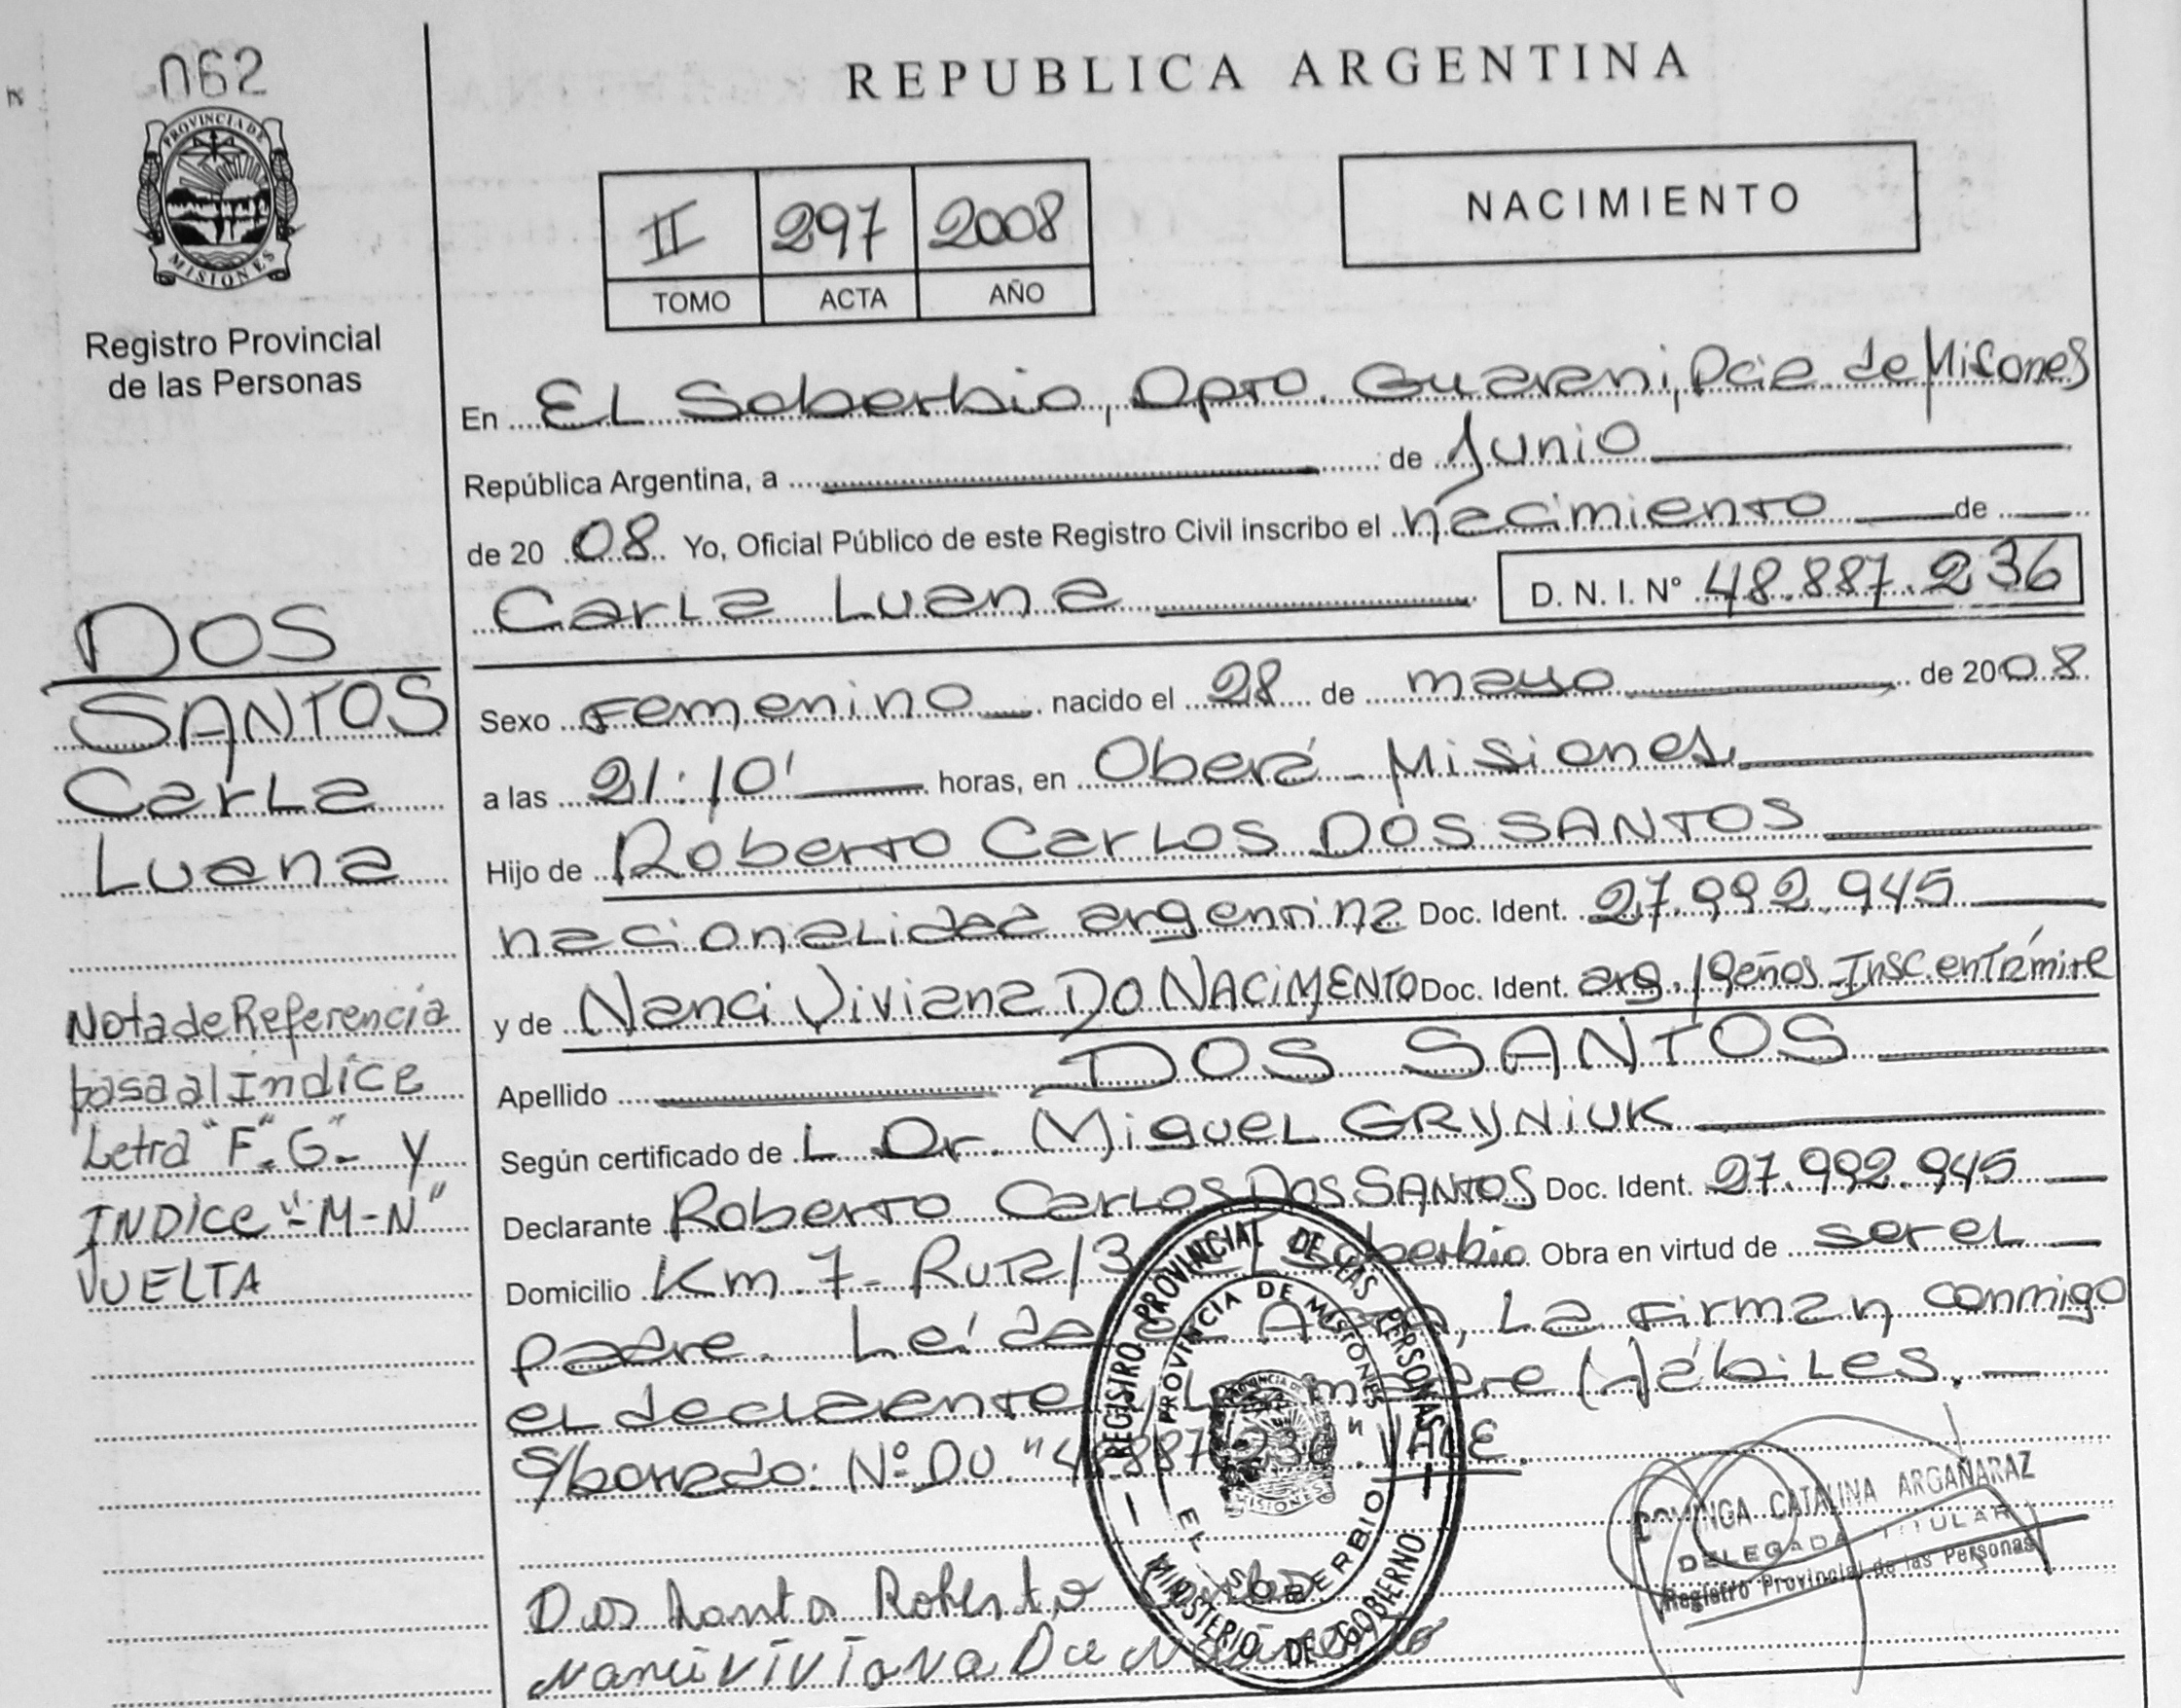 062
PROVINCIA DE
MISIONES
Registro Provincial
de las Personas
REPUBLICA ARGENTINA
II 297 2008
TOMO ACTA AÑO
NACIMIENTO
En EL Soberbio, Dpto. Guarani, Pcia. de Misiones
República Argentina, a de Junio
de 20 08 Yo, Oficial Público de este Registro Civil inscribo el nacimiento de
Carla Luana D. N. I. Nº 48.887.236
Sexo Femenino nacido el 28 de mayo de 2008
a las 21:10' horas, en Oberá - Misiones.
Hijo de Roberto Carlos DOS SANTOS
nacionalidad argentina Doc. Ident. 27.992.945
y de Nanci Viviana DO NACIMENTO Doc. Ident. arg. 19 años Insc. en Trámite
Apellido DOS SANTOS
Según certificado de L Dr. Miguel GRYNIUK
Declarante Roberto Carlos DOS SANTOS Doc. Ident. 27.992.945
Domicilio Km. 7 - Ruta 13 Soberbio Obra en virtud de ser el
padre. Leída el Acta, La firman conmigo
el declarante y La madre (Hábiles.
S/borrado: Nº DU "48.887.236". VALE.
Dos Santos Roberto Carlos
Nanci Viviana Do Nacimento
DOS
SANTOS
Carla
Luana
Nota de Referencia
pasa al Indice
Letra "F-G- y
INDICE "-M-N"
VUELTA
REGISTRO PROVINCIAL DE LAS PERSONAS
MINISTERIO DE GOBIERNO
PROVINCIA DE MISIONES
EL SOBERBIO
MISIONES
DOMINGA CATALINA ARGAÑARAZ
DELEGADA TITULAR
Registro Provincial de las Personas